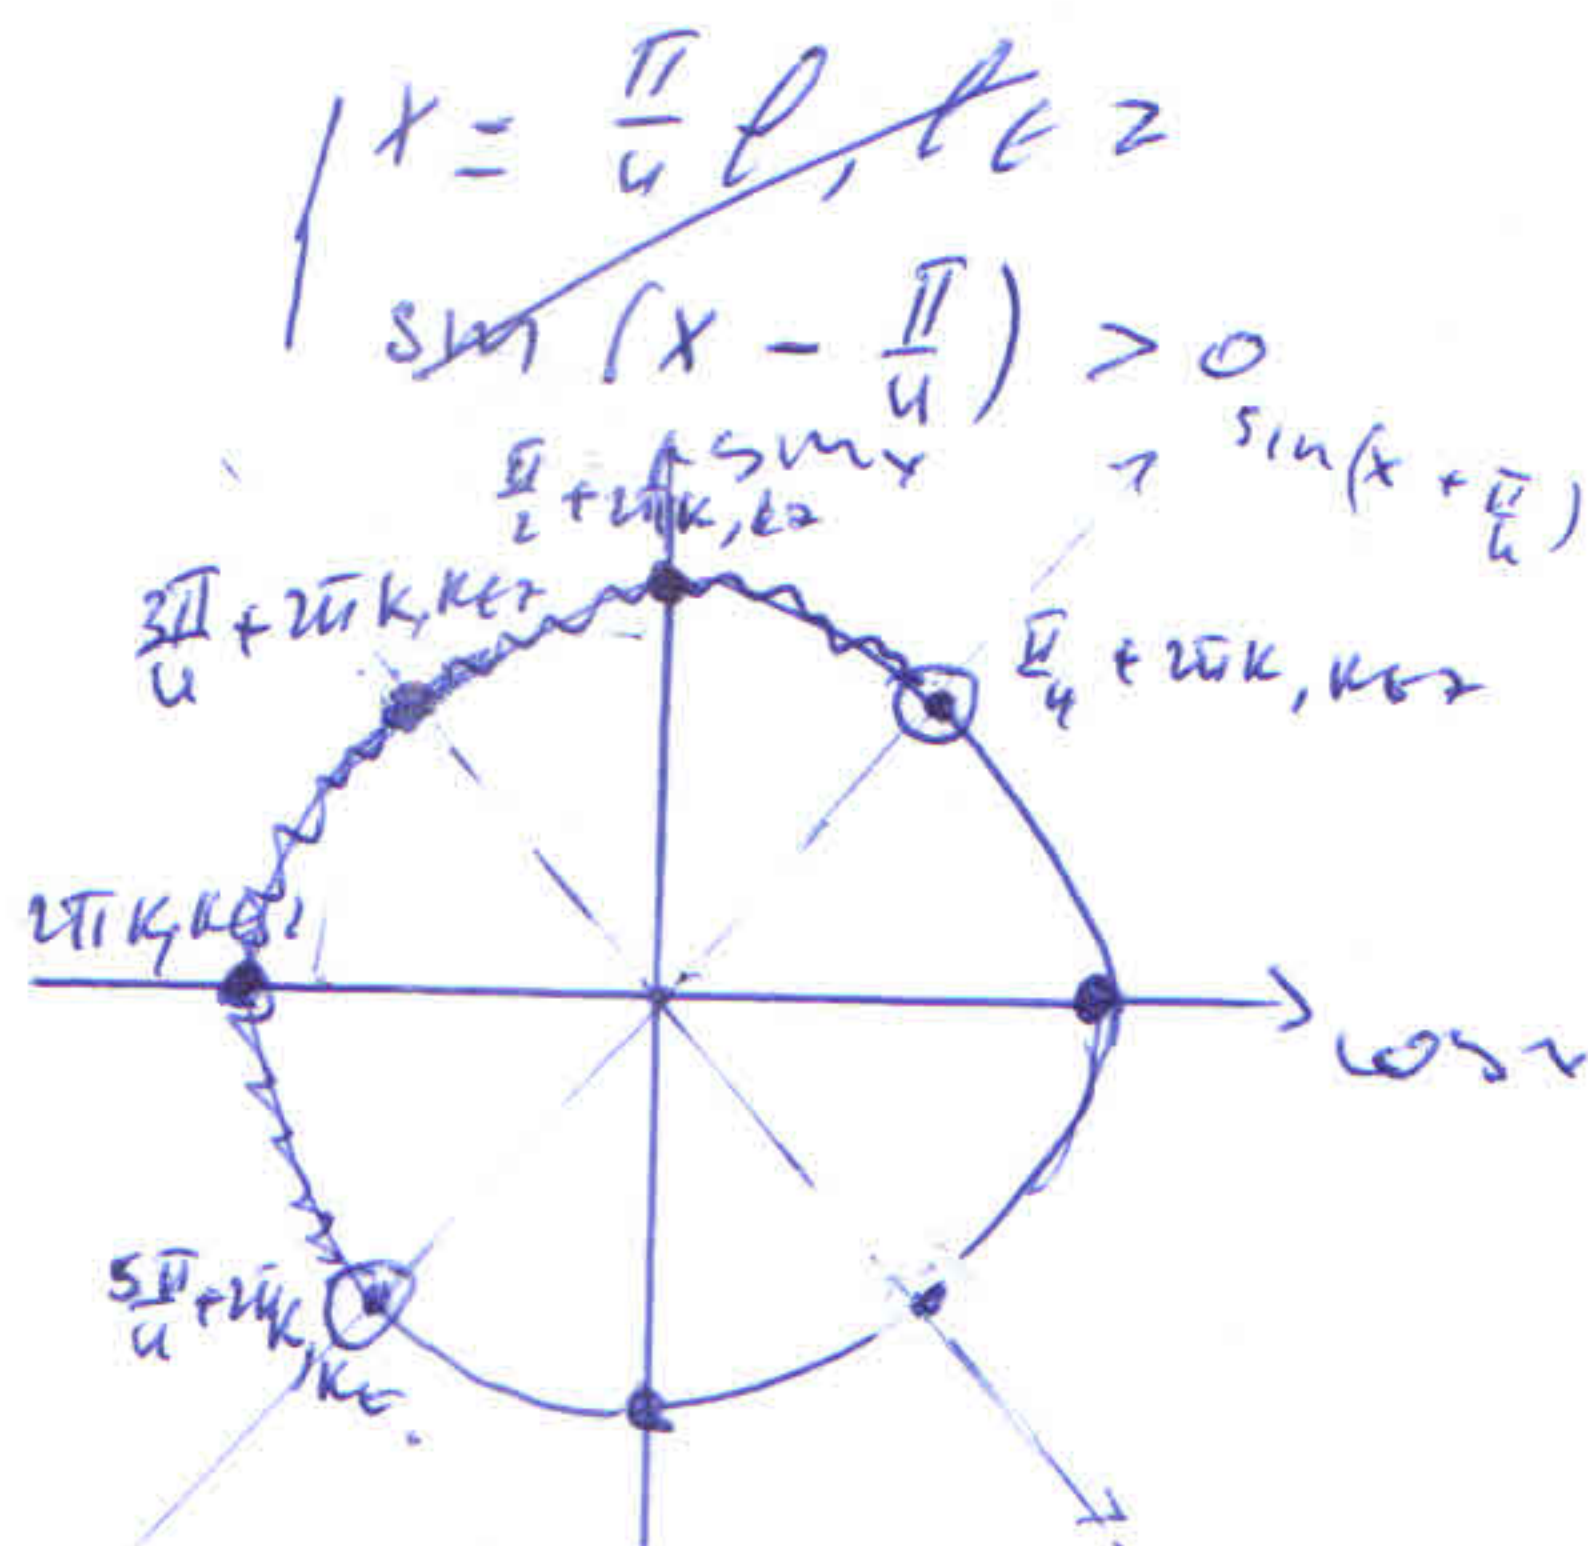 x = π/4 l, l ∈ Z
sin (x - π/4) > 0
sin x
sin(x + π/4)
π/2 + 2πk, ∈ Z
3π/4 + 2πk, k ∈ Z
π/4 + 2πk, k ∈ Z
2πk, k ∈ Z
cos x
5π/4 + 2πk, k ∈